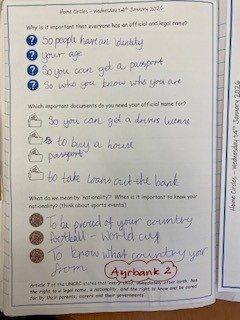 Home Circles – Wednesday 14th January 2026
Why is it important that everyone has an official and legal name?
So people have an Identity
Your age
So you can get a passport
So who you know who you are
Which important documents do you need your official name for?
So you can get a drivers
to buy a house
passport
to take loans out the bank
What do we mean by 'nationality? When is it important to know your
nationality? (think about sports events)
To be proud of your country
Football - World cup
To know what country your
from
Ayrbank 2
Article 7 of the UNCRC states that every child, immediately after birth, has
the right to a legal name, a nationality, and the right to know and be cared
for by their parents, carers and their governments.
Home Circles – Wednesday 14th January 2026